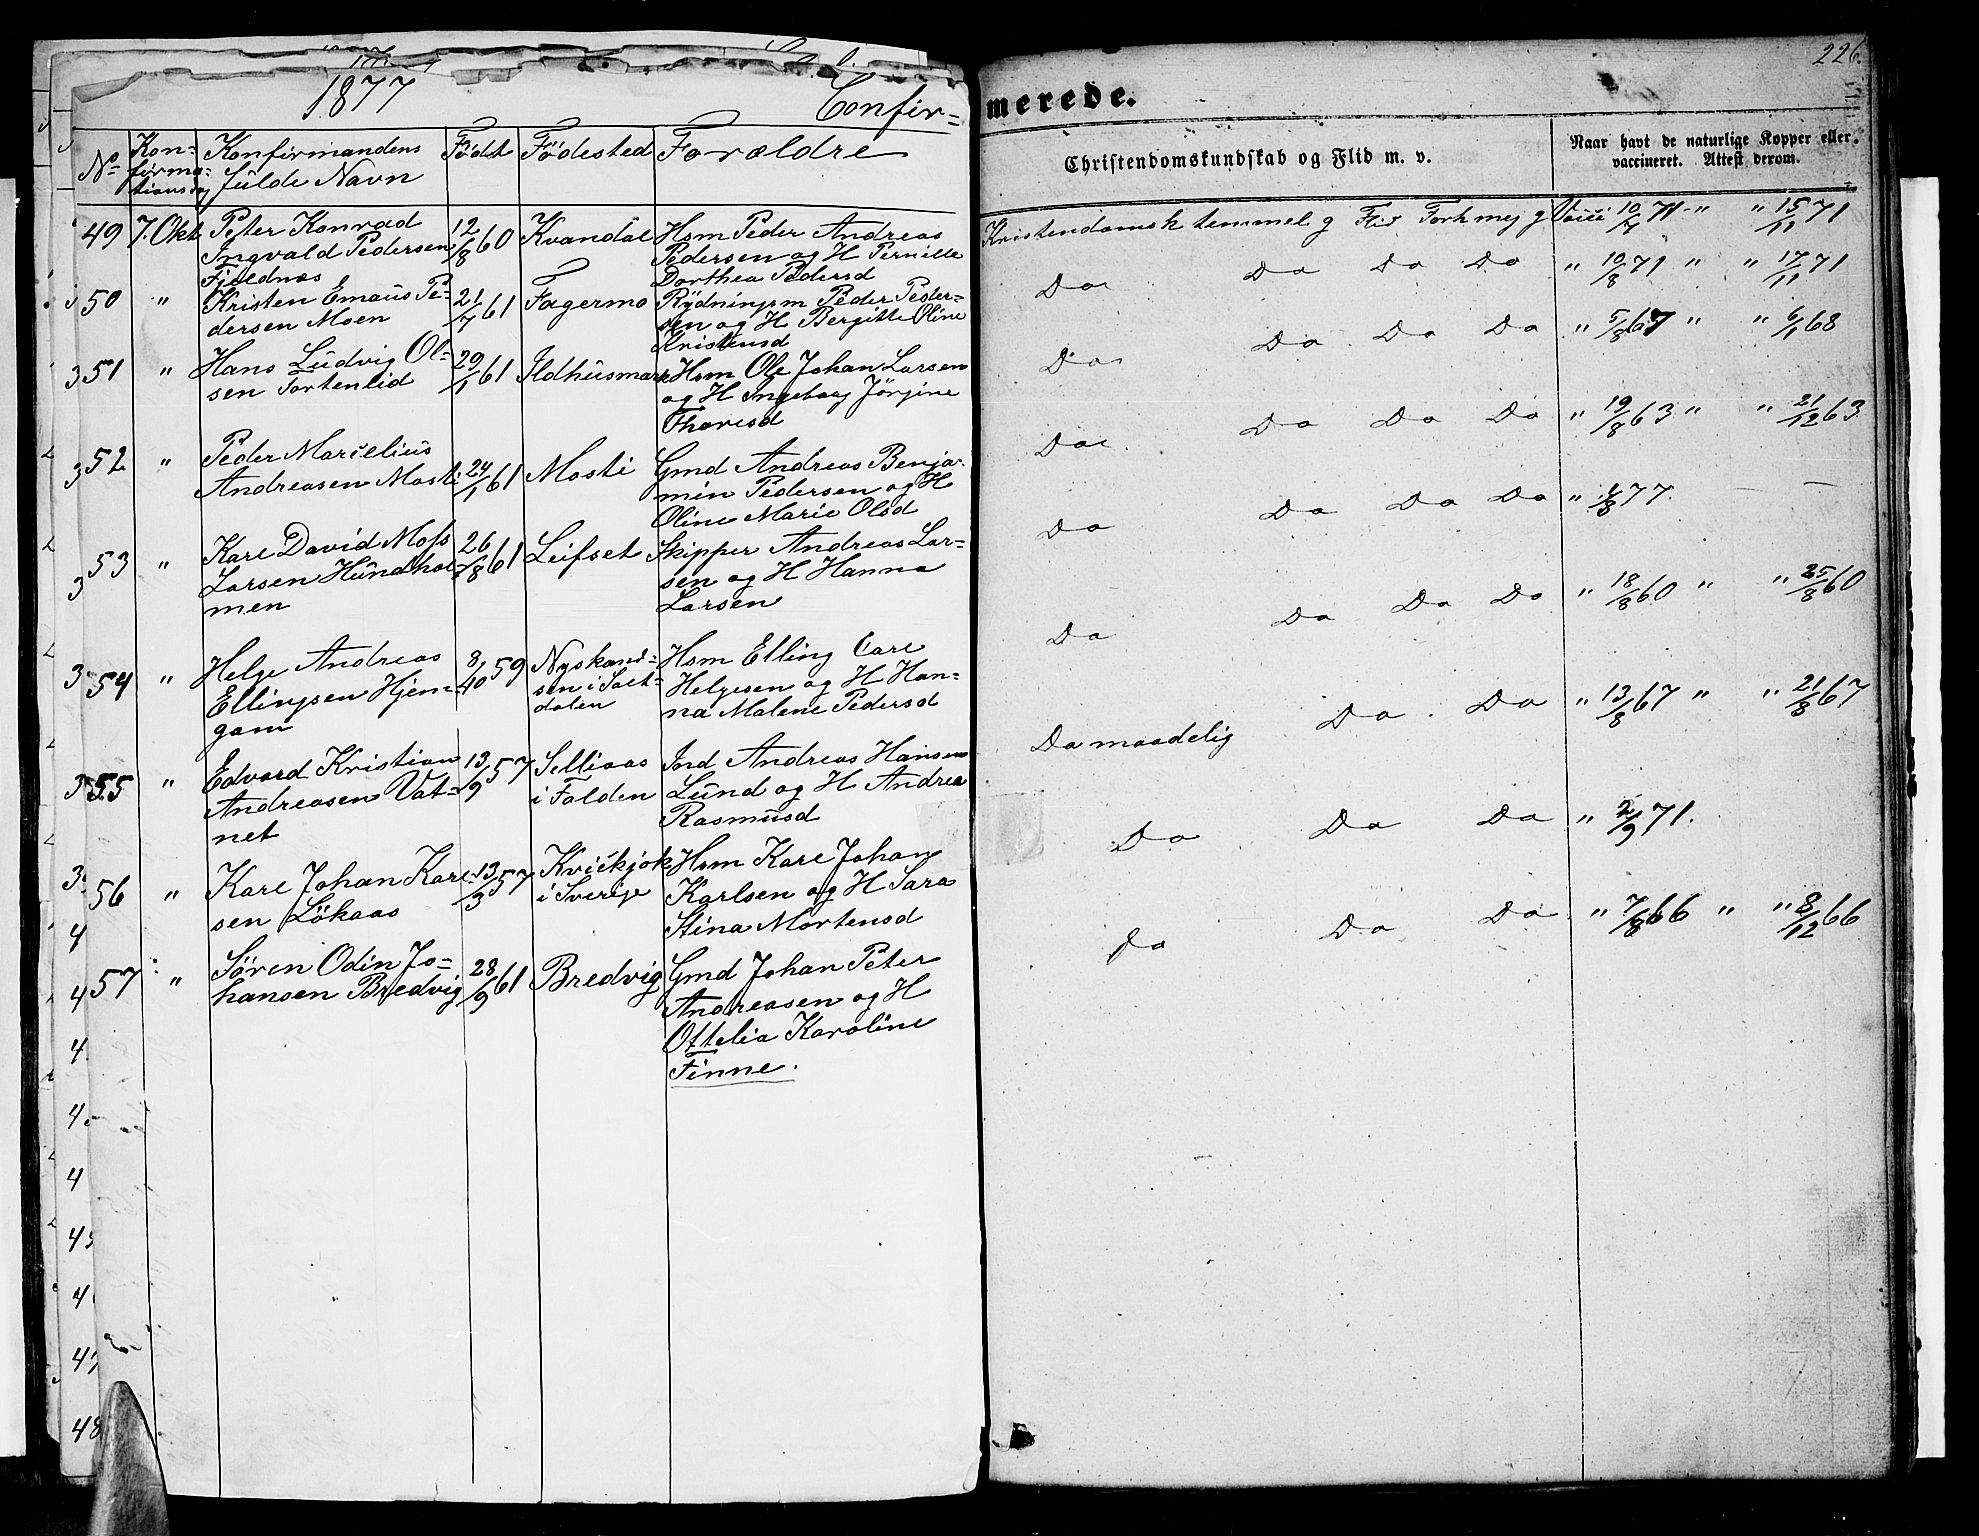 1877
Confir=
merede.
226.
No
Kon=
firma=
tionsdag
Konfirmandens
fulde Navn
Födt
Födested
Forældre
Christendomskundskab og Flid m. v.
Naar havt de naturlige Kopper eller
vaccineret. Attest derom.
49 7. Okt Peter Konrad 12/8 60 Kvandal Hsm Peder Andreas
Ingvald Pedersen Pedersen og H Pernille
Fjeldnæs Dorthea Pedersd
Kristendomsk temmel g Flid Forh meg g Vacc 10/7 71 " " 15/11 71
50 " Kristen Emaus Pe= 21/7 61 Fagermo Rydningsm Peder Peder=
dersen Moen sen og H Bergitte Oline
Kristensd
Do Do Do Do " 10/8 71 " " 17/11 71
51 " Hans Ludvig Ol= 29/1 61 Ildhusmark Hsm Ole Johan Larsen
sen Tortenlid og H Ingeborg Jörgine
Thoresd
Do Do Do Do " 5/8 67 " " 6/1 68
52 " Peder Marcelius
Andreasen Mosti 24/1 61 Mosti Gmd Andreas Benja=
min Pedersen og H
Oline Marie Olsd
Do Do Do Do " 19/8 63 " " 21/12 63
53 " Karl David Mofs 26/8 61 Leifset Skipper Andreas Lar=
Larsen Hundhol= sen og H Hanna
men Larsen
Do Do Do Do " /8 77. — —
54 " Helge Andreas 8/10 59 Nyskand= Hsm Elling Carl
Ellingsen Hjem= sen i Salt= Helgesen og H Han=
gam dalen na Malene Pedersd
Do Do Do Do " 18/8 60 " " 25/8 60
55 " Edvard Kristian 13/9 57 Selliaas Ind Andreas Hansen
Andreasen Vat= i Folden Lund og H Andrea
net Rasmusd
Do maadelig Do Do " 13/8 67 " " 21/8 67
56 " Karl Johan Karl= 13/3 57 Kvickjok Hsm Karl Johan
sen Lökaas i Sverige Karlsen og H Sara
Stina Mortensd
Do Do Do " 2/9 71.
57 " Sören Odin Jo= 28/9 61 Bredvig Gmd Johan Peter
hansen Bredvig Andreasen og H
Ottelia Karoline
Finne.
Do Do Do " 7/8 66 " " 8/12 66
48